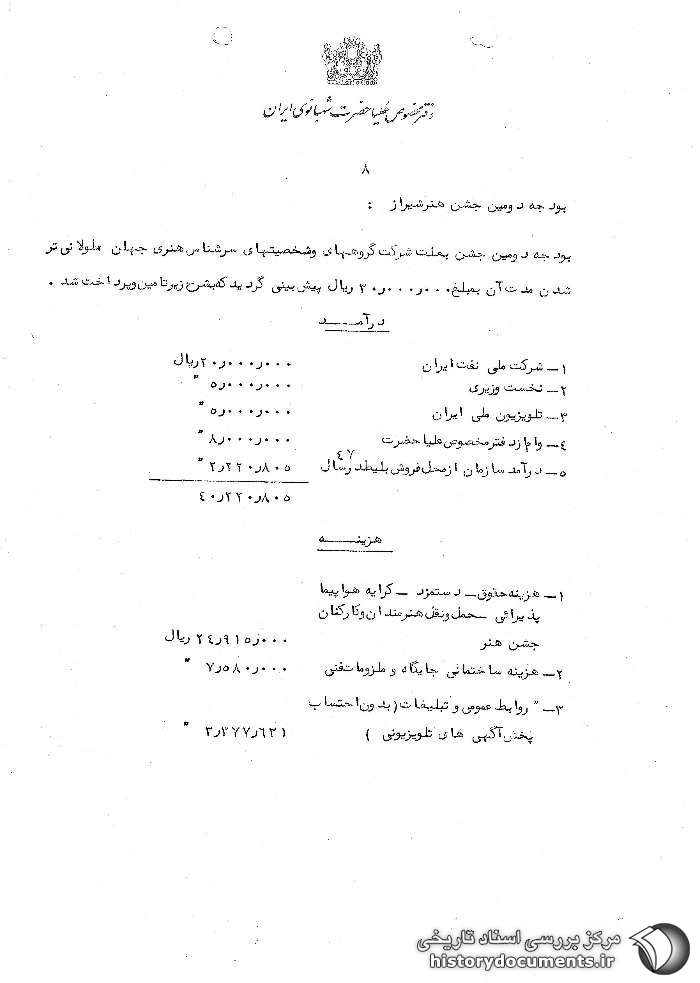 دفتر مخصوص علیاحضرت شهبانوی ایران
۸
بودجه دومین جشن هنر شیراز :
بودجه دومین جشن بعلت شرکت گروههای وشخصیتهای سرشناس هنری جهان طولانی تر
شدن مدت آن بمبلغ ۳۰٫۰۰۰٫۰۰۰ ریال پیش بینی گردید که بشرح زیر تامین و پرداخت شد .
درآمد
۱ـ شرکت ملی نفت ایران ۲۰٫۰۰۰٫۰۰۰ ریال
۲ـ نخست وزیری ۵٫۰۰۰٫۰۰۰ "
۳ـ تلویزیون ملی ایران ۵٫۰۰۰٫۰۰۰ "
۴ـ وام از دفتر مخصوص علیاحضرت ۸٫۰۰۰٫۰۰۰ "
۵ـ درآمد سازمان از محل فروش بلیط در سال ۴۷ ۲٫۲۲۰٫۸۰۵ "
۴۰٫۲۲۰٫۸۰۵
هزینه
۱ـ هزینه حقوق ـ دستمزد ـ کرایه هواپیما
پذیرائی ـ حمل ونقل هنرمندان و کارکنان
جشن هنر ۲۴٫۹۱۵٫۰۰۰ ریال
۲ـ هزینه ساختمانی جایگاه و ملزومات فنی ۷٫۵۸۰٫۰۰۰ "
۳ـ " روابط عمومی و تبلیغات ( بدون احتساب
پخش آگهی های تلویزیونی ) ۳٫۳۷۷٫۶۳۱ "
مرکز بررسی اسناد تاریخی
historydocuments.ir